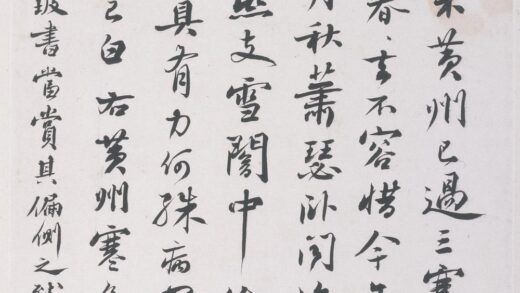 来黃州已過三寒
春〻去不容惜今年
月秋蕭瑟卧聞
燕支雪闇中
具有力何殊病
已白右黃州寒食
書當賞其偏側之